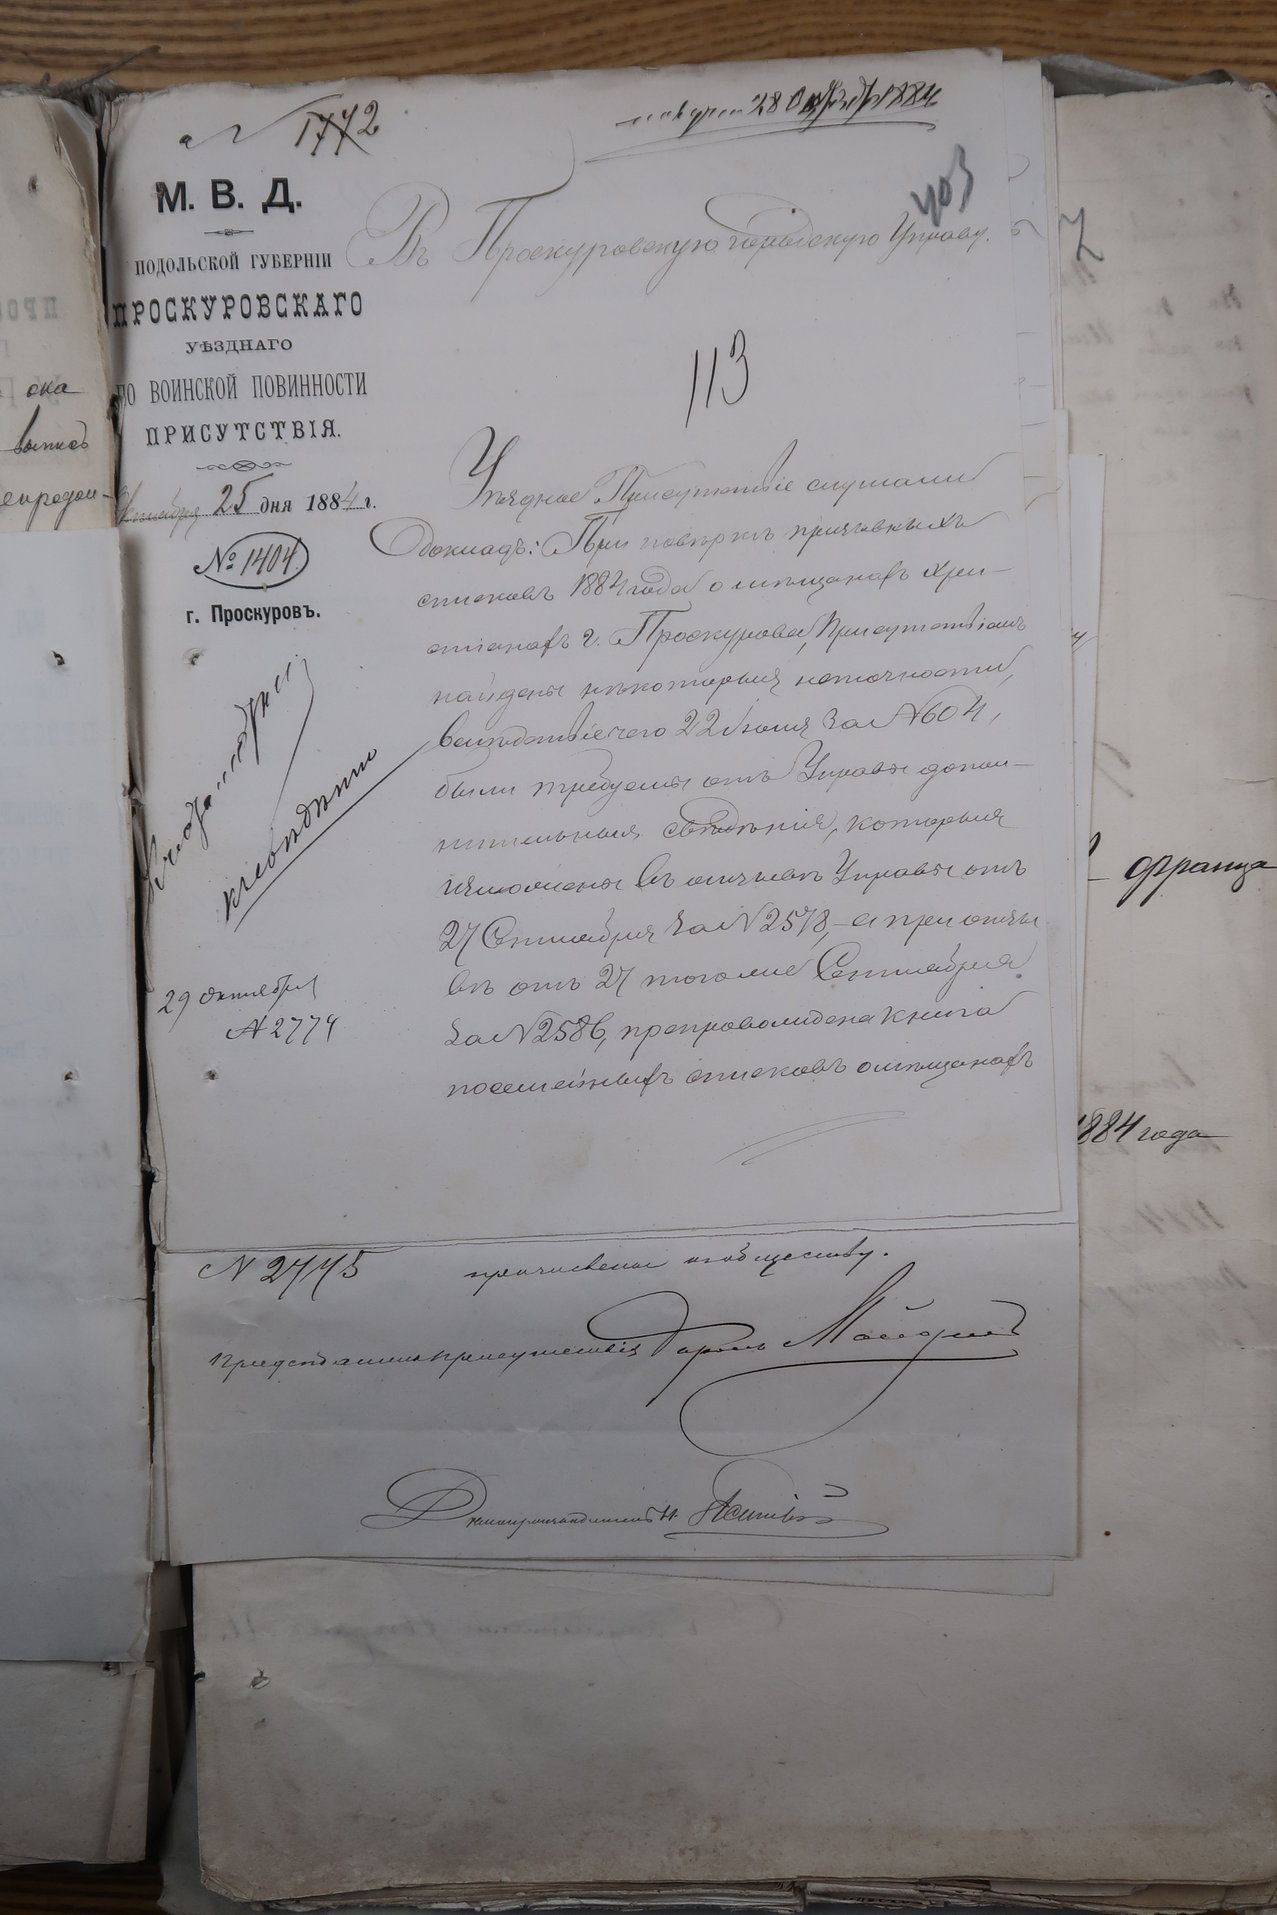 № 1772
получен 28 Октября 1884
403
М. В. Д.
ПОДОЛЬСКОЙ ГУБЕРНІИ
ПРОСКУРОВСКАГО
УѢЗДНАГО
ПО ВОИНСКОЙ ПОВИННОСТИ
ПРИСУТСТВІЯ.
Октября 25 дня 1884 г.
№ 1404.
г. Проскуровъ.
Въ Проскуровскую городскую Управу.
113
Уѣздное Присутствіе слушали
докладъ: При повѣркѣ призывныхъ
списковъ 1884 года о мѣщанахъ хри-
стіанахъ г. Проскурова, Присутствіемъ
найдены нѣкоторыя неточности,
вслѣдствіе чего 22 Іюня за № 604,
были требуемы отъ Управы допол-
нительныя свѣдѣнія, которыя
изложены въ отзывѣ Управы отъ
27 Сентября за № 2578, а при отзы-
вѣ отъ 27 того же Сентября
за № 2586, препровождена книга
посемейныхъ списковъ о мѣщанахъ
къ свѣдѣнію
29 октября
№ 2774
№ 2775
причисленію къ обществу.
Предсѣдатель присутствія
Дѣлопроизводитель
ока
франца
1884 года